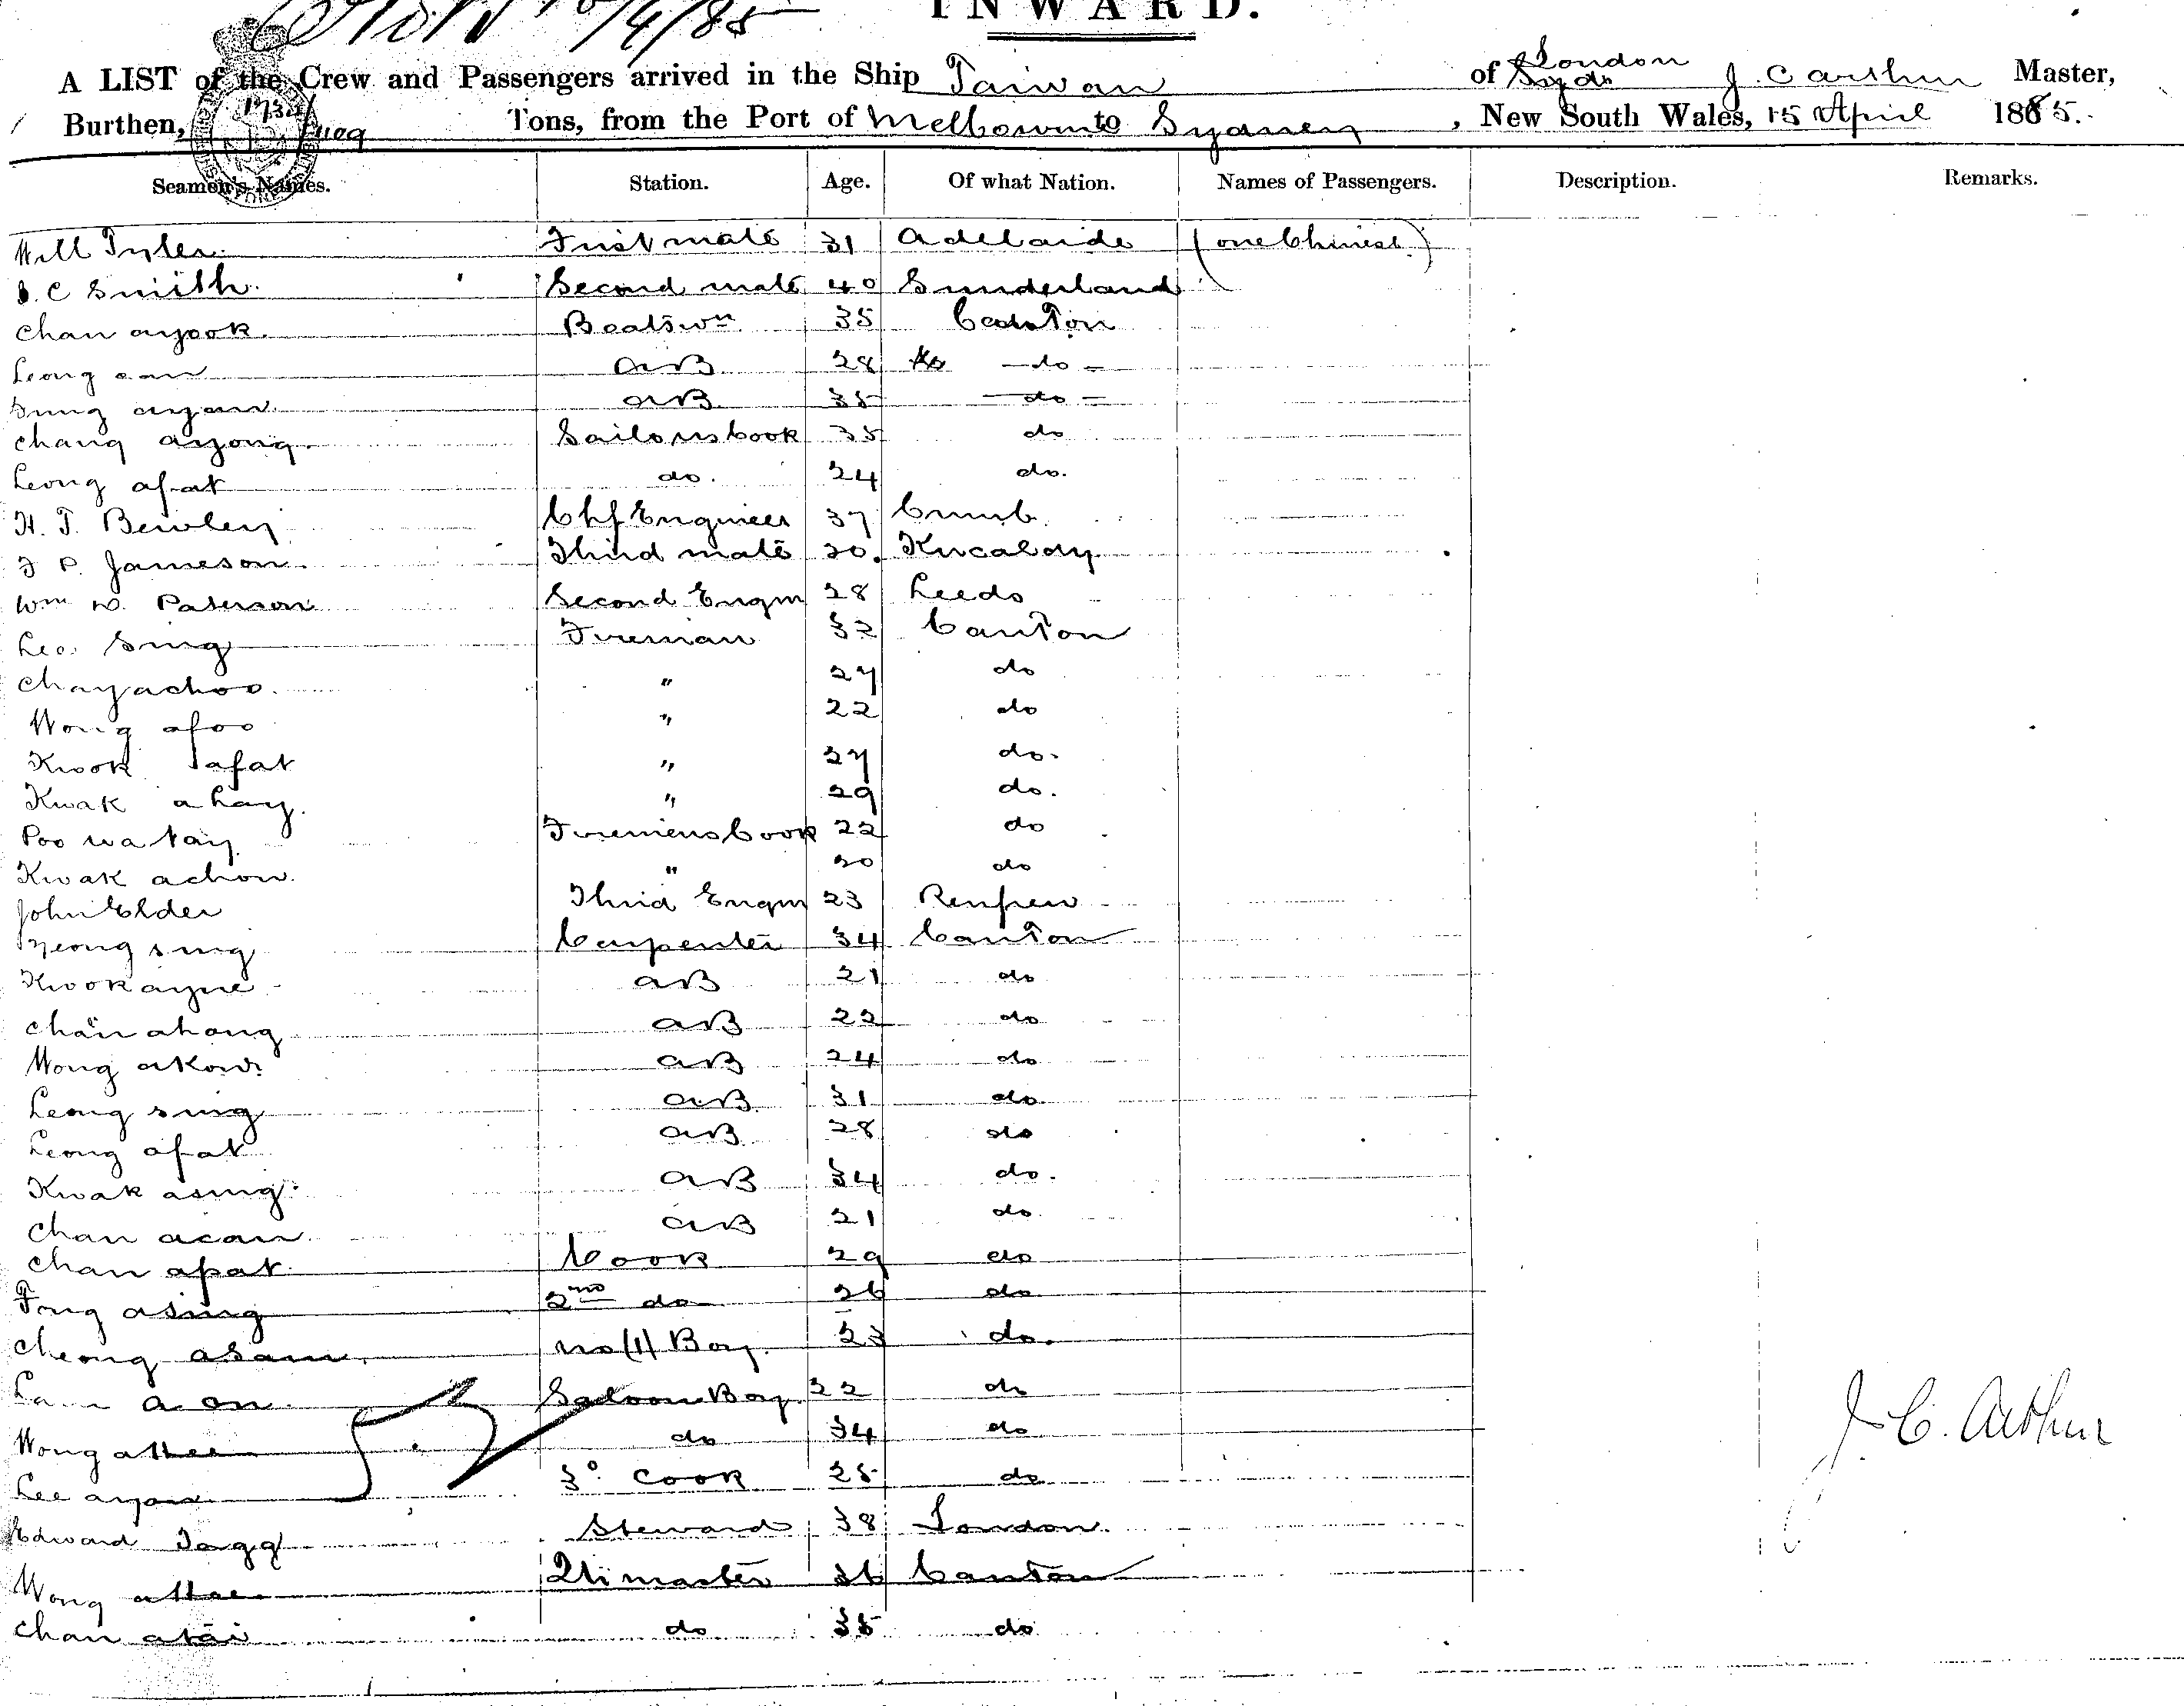 15/4/85
INWARD.
London
A LIST of the Crew and Passengers arrived in the Ship Taiwan of J. C Arthur Master,
Burthen, 1735 Tons, from the Port of Melbourne to Sydney, New South Wales, 15 April 1885.
Seamen's Names. Station. Age. Of what Nation. Names of Passengers. Description. Remarks.
Will Tyler First mate 31 Adelaide (one Chinese)
C Smith Second mate 40 Sunderland
Chan ayook Boatswn 35 Canton
Leong aB 28 do
ayan aB 35 do
Chang ayong Sailors Cook 35 do
Leong afat do. 24 do.
H. T. Bewley Chf Engineer 37 Cumb.
J P. Jameson Third mate 20 Kircaldy
Wm W. Paterson Second Engnr 28 Leeds
Lee Sing Fireman 32 Canton
Chayachoo " 27 do
Wong afoo " 22 do
Kwok afat " 27 do.
Kwak ahay " 29 do.
Poo wa tay Firemens Cook 22 do
Kwak achow " 20 do
John Elder Third Engnr 23 Renfrew
Yeong sing Carpenter 34 Canton
Kwok ayne aB 21 do
Chan ahong aB 22 do
Wong akow aB 24 do
Leong sing aB 31 do
Leong afat aB 28 do
Kwak asing aB 34 do.
Chan acan aB 21 do
Chan apat Cook 29 do
Fong asing 2nd do 26 do
Cheong asam no (1) Boy 23 do.
Lam a on Saloon Boy 22 do
Wong do 34 do
Lee ayow 3o Cook 25 do
J. C. Arthur
Edward Tagg Steward 38 London
Wong Qtrmaster 36 Canton
Chan atai do 35 do